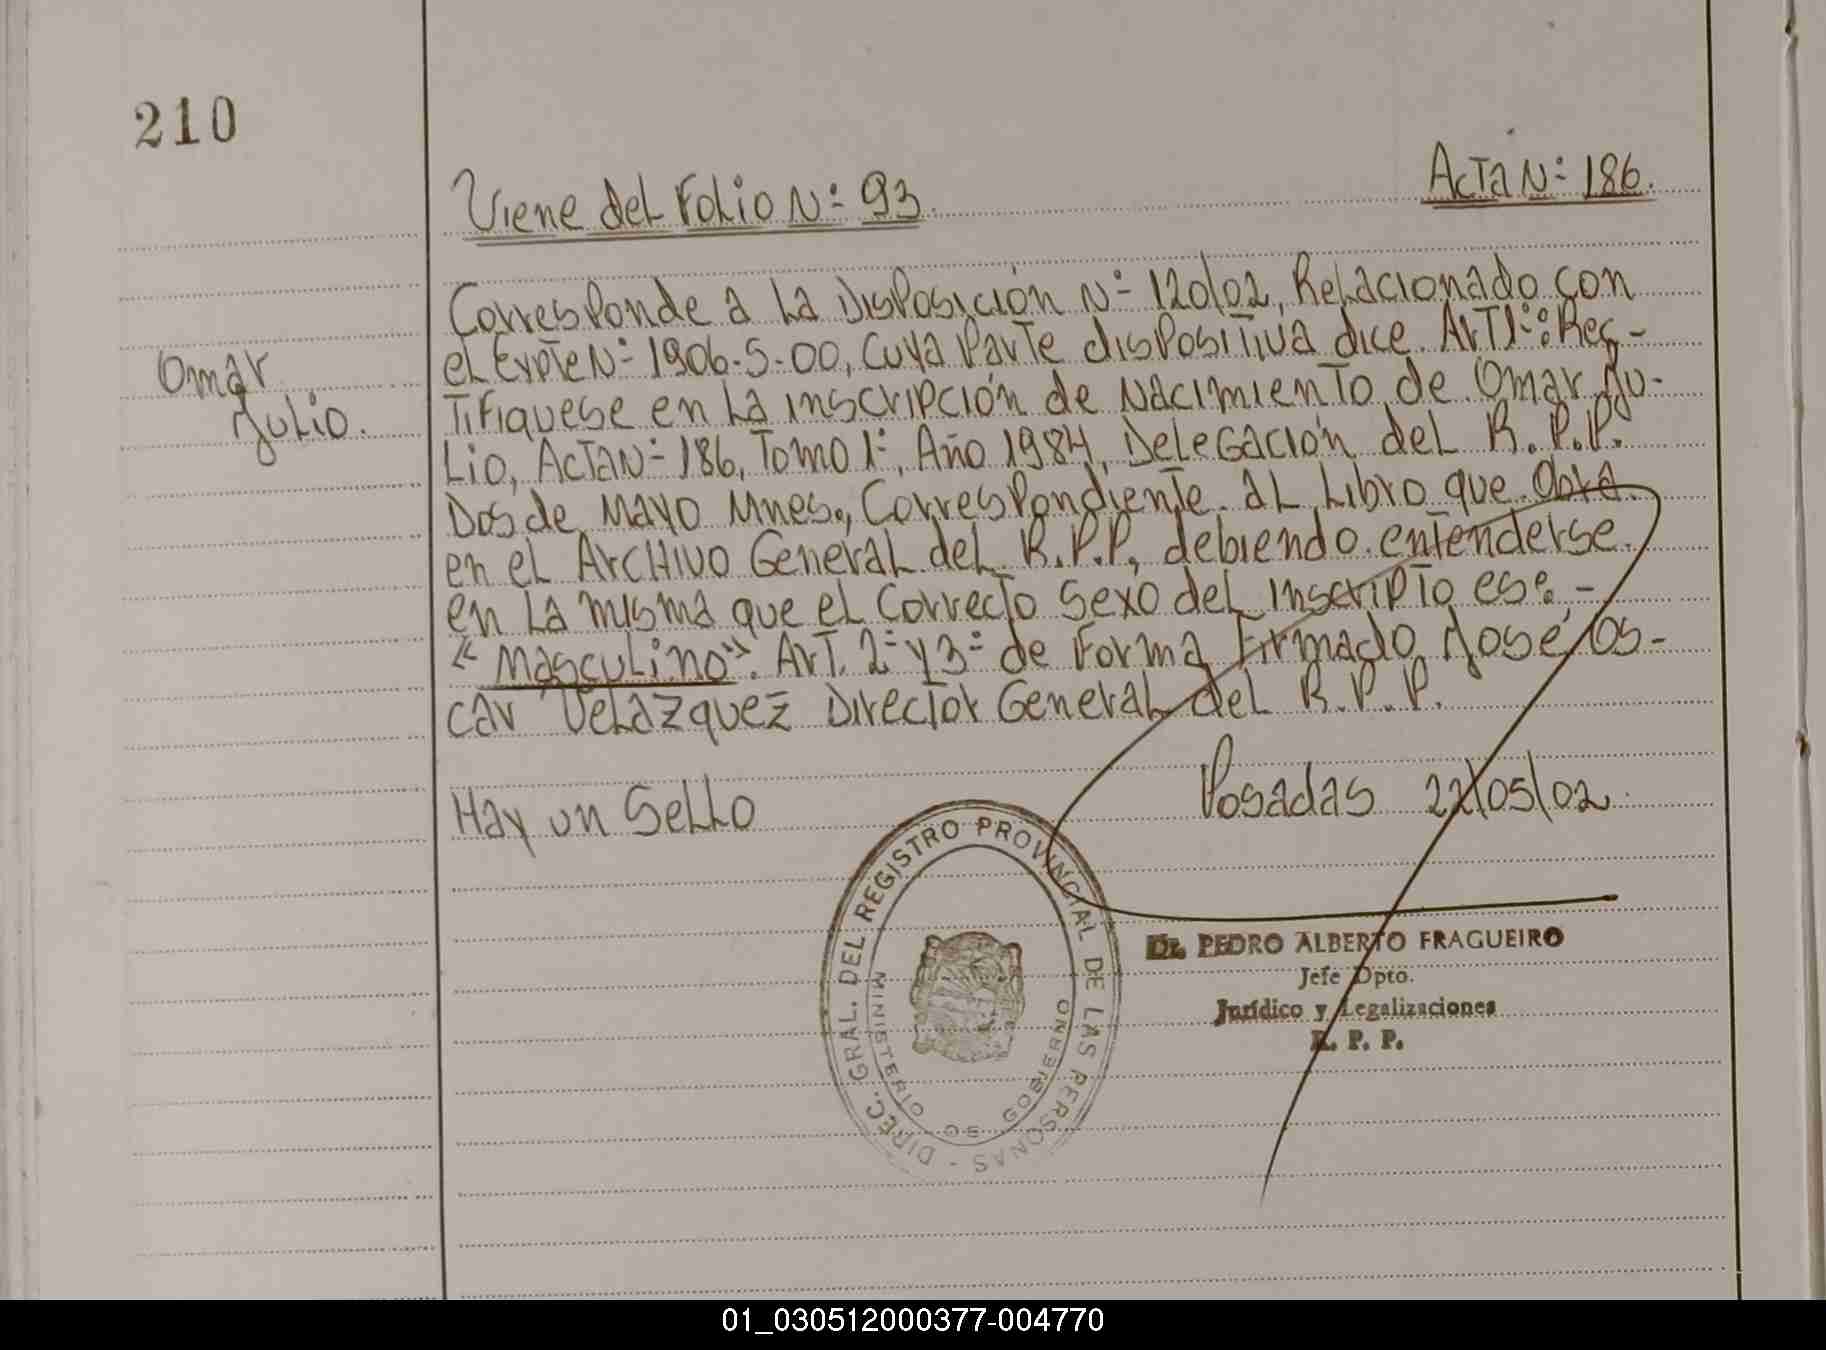 210
Viene del Folio N° 93.
Acta N° 186.
Omar
Julio.
Corresponde a la Disposición N° 120/02, Relacionado con
el Expte N° 1906-S-00, cuya parte dispositiva dice. Art 1°: Rec-
tifiquese en la inscripción de Nacimiento de Omar Ju-
lio, Acta N° 186, Tomo 1°, Año 1984, Delegación del R.P.P.
Dos de Mayo Mnes., Correspondiente al Libro que obra
en el Archivo General del R.P.P, debiendo entenderse
en la misma que el correcto sexo del inscripto es: -
"Masculino". Art. 2° y 3° de Forma Firmado José Os-
car Velazquez Director General del R.P.P.
Hay un Sello
Posadas 22/05/02
DIREC. GRAL. DEL REGISTRO PROVINCIAL DE LAS PERSONAS -
MINISTERIO DE GOBIERNO
Dr. PEDRO ALBERTO FRAGUEIRO
Jefe Dpto.
Jurídico y Legalizaciones
R. P. P.
01_030512000377-004770